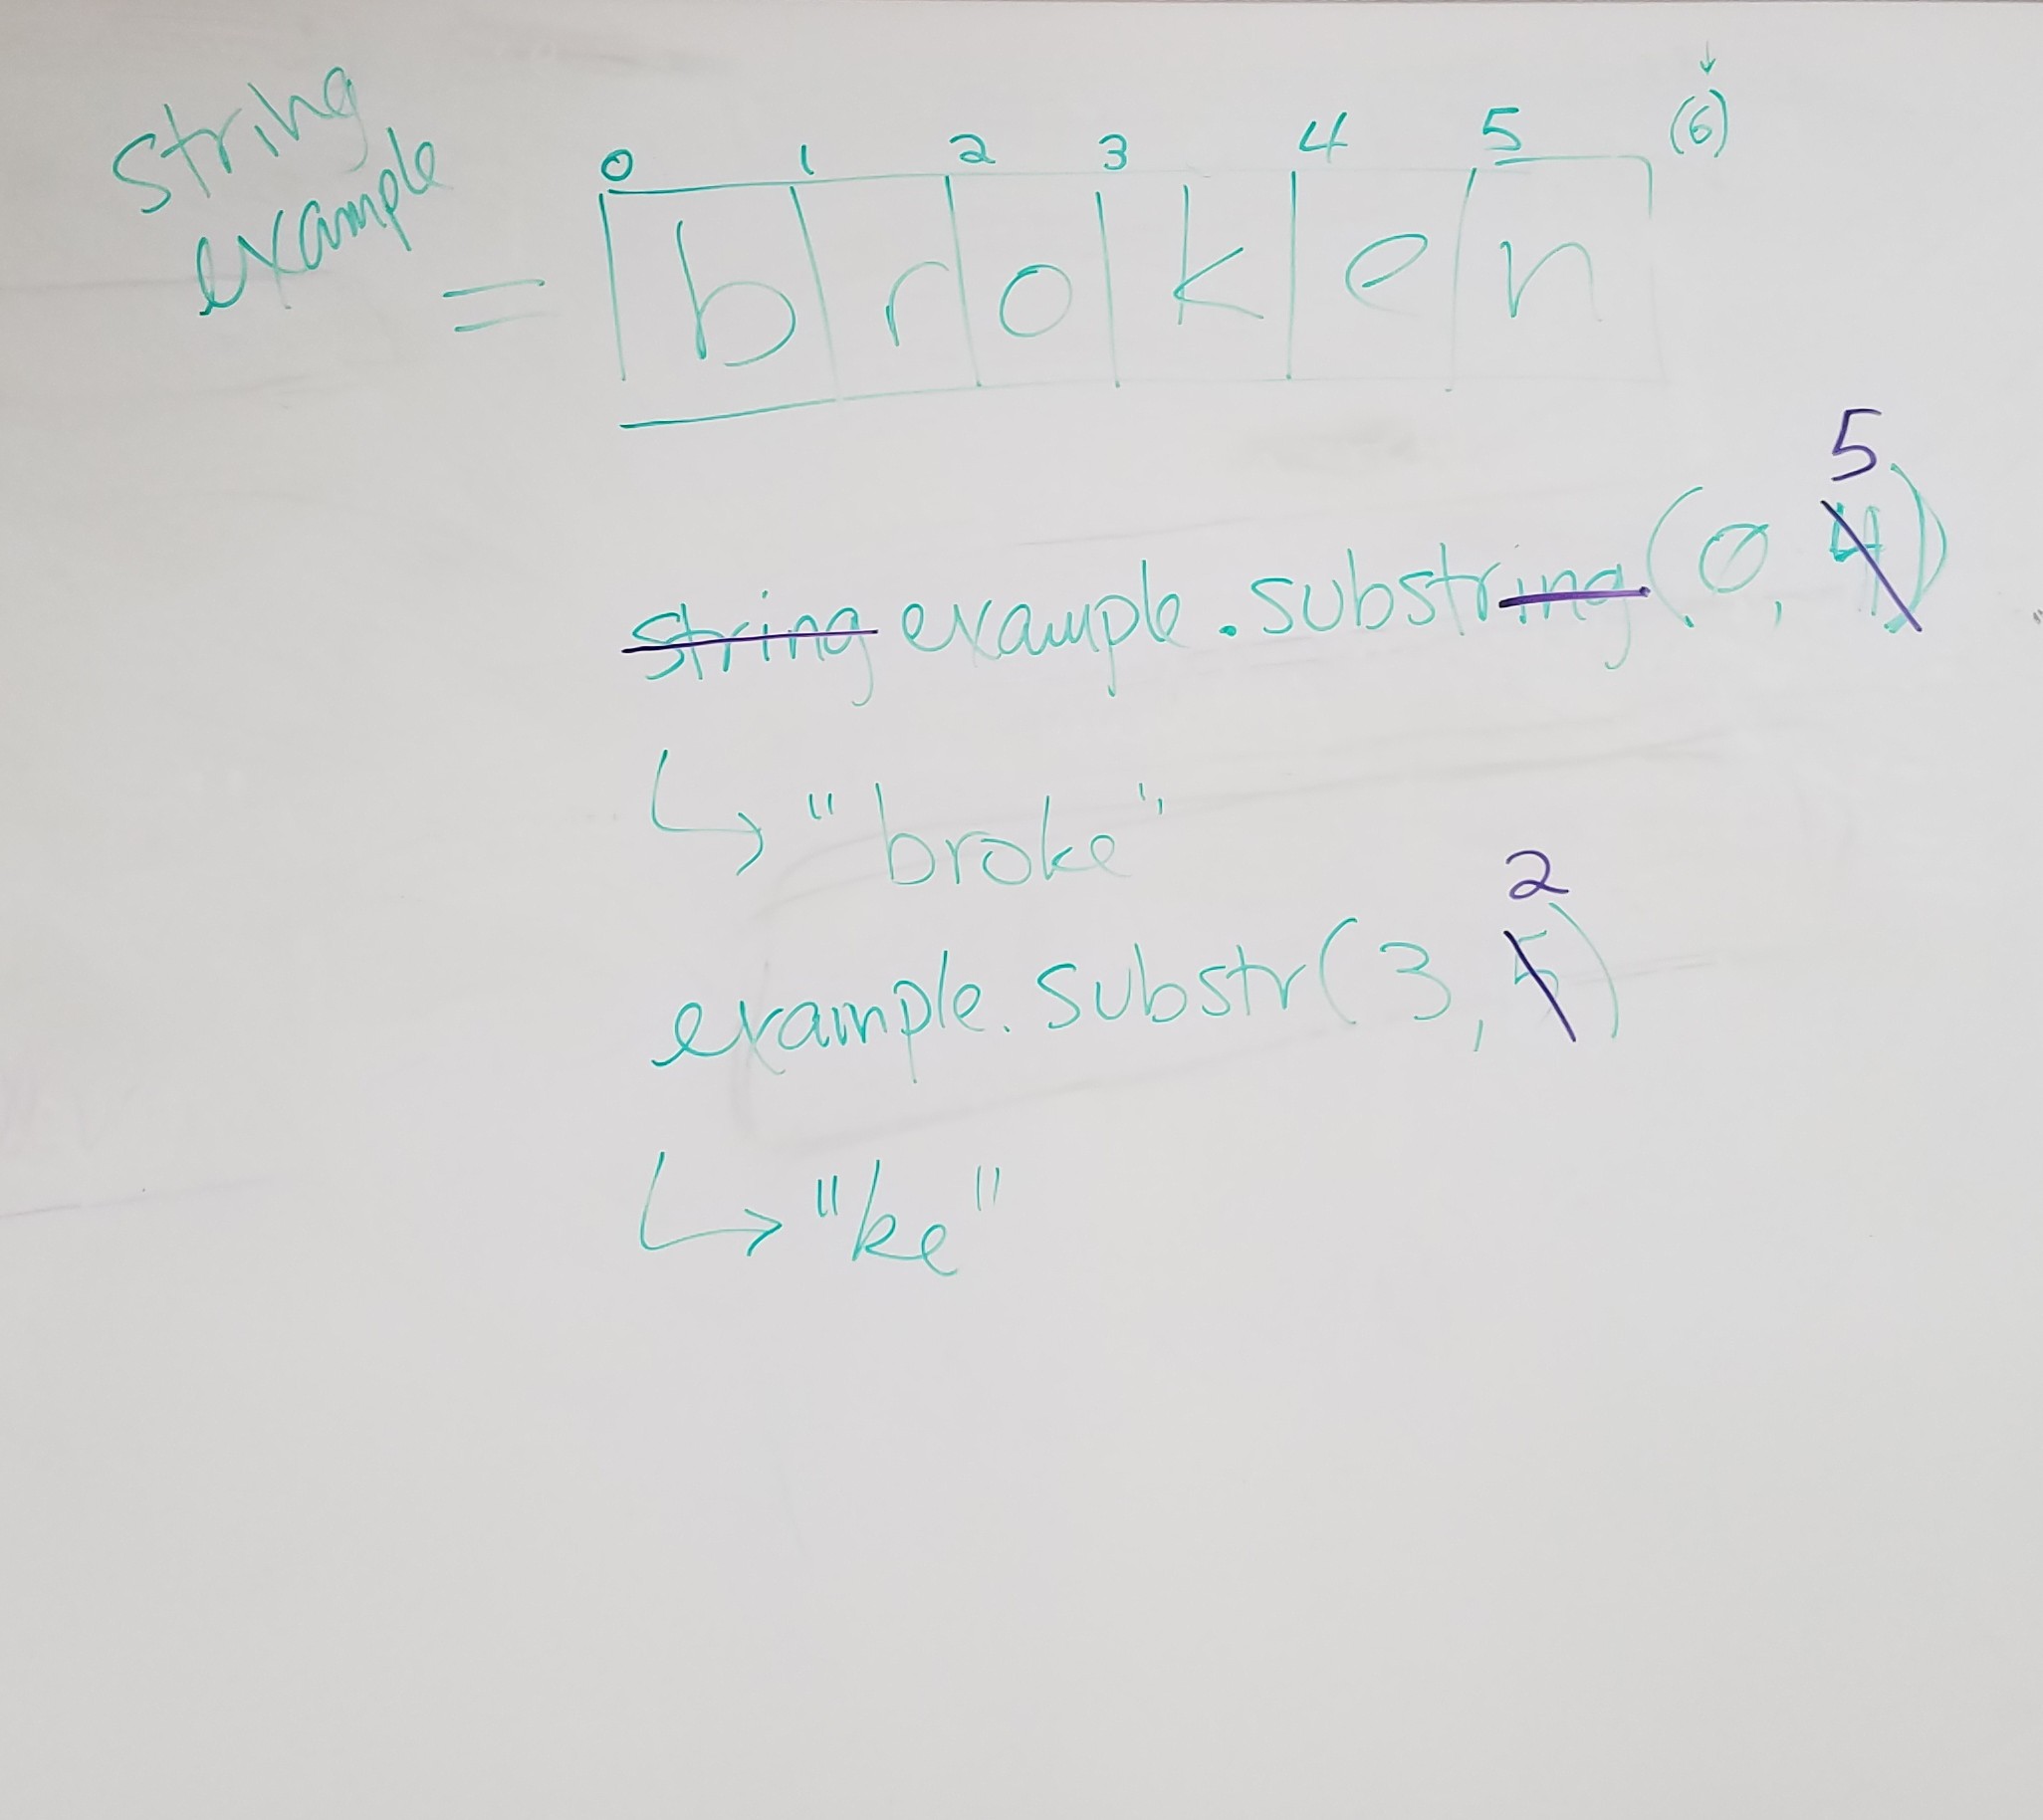 string
example
0 1 2 3 4 5 (6)
= b r o k e n
5
string example.substring(0, 4)
"broke"
2
example.substr(3, 5)
"ke"